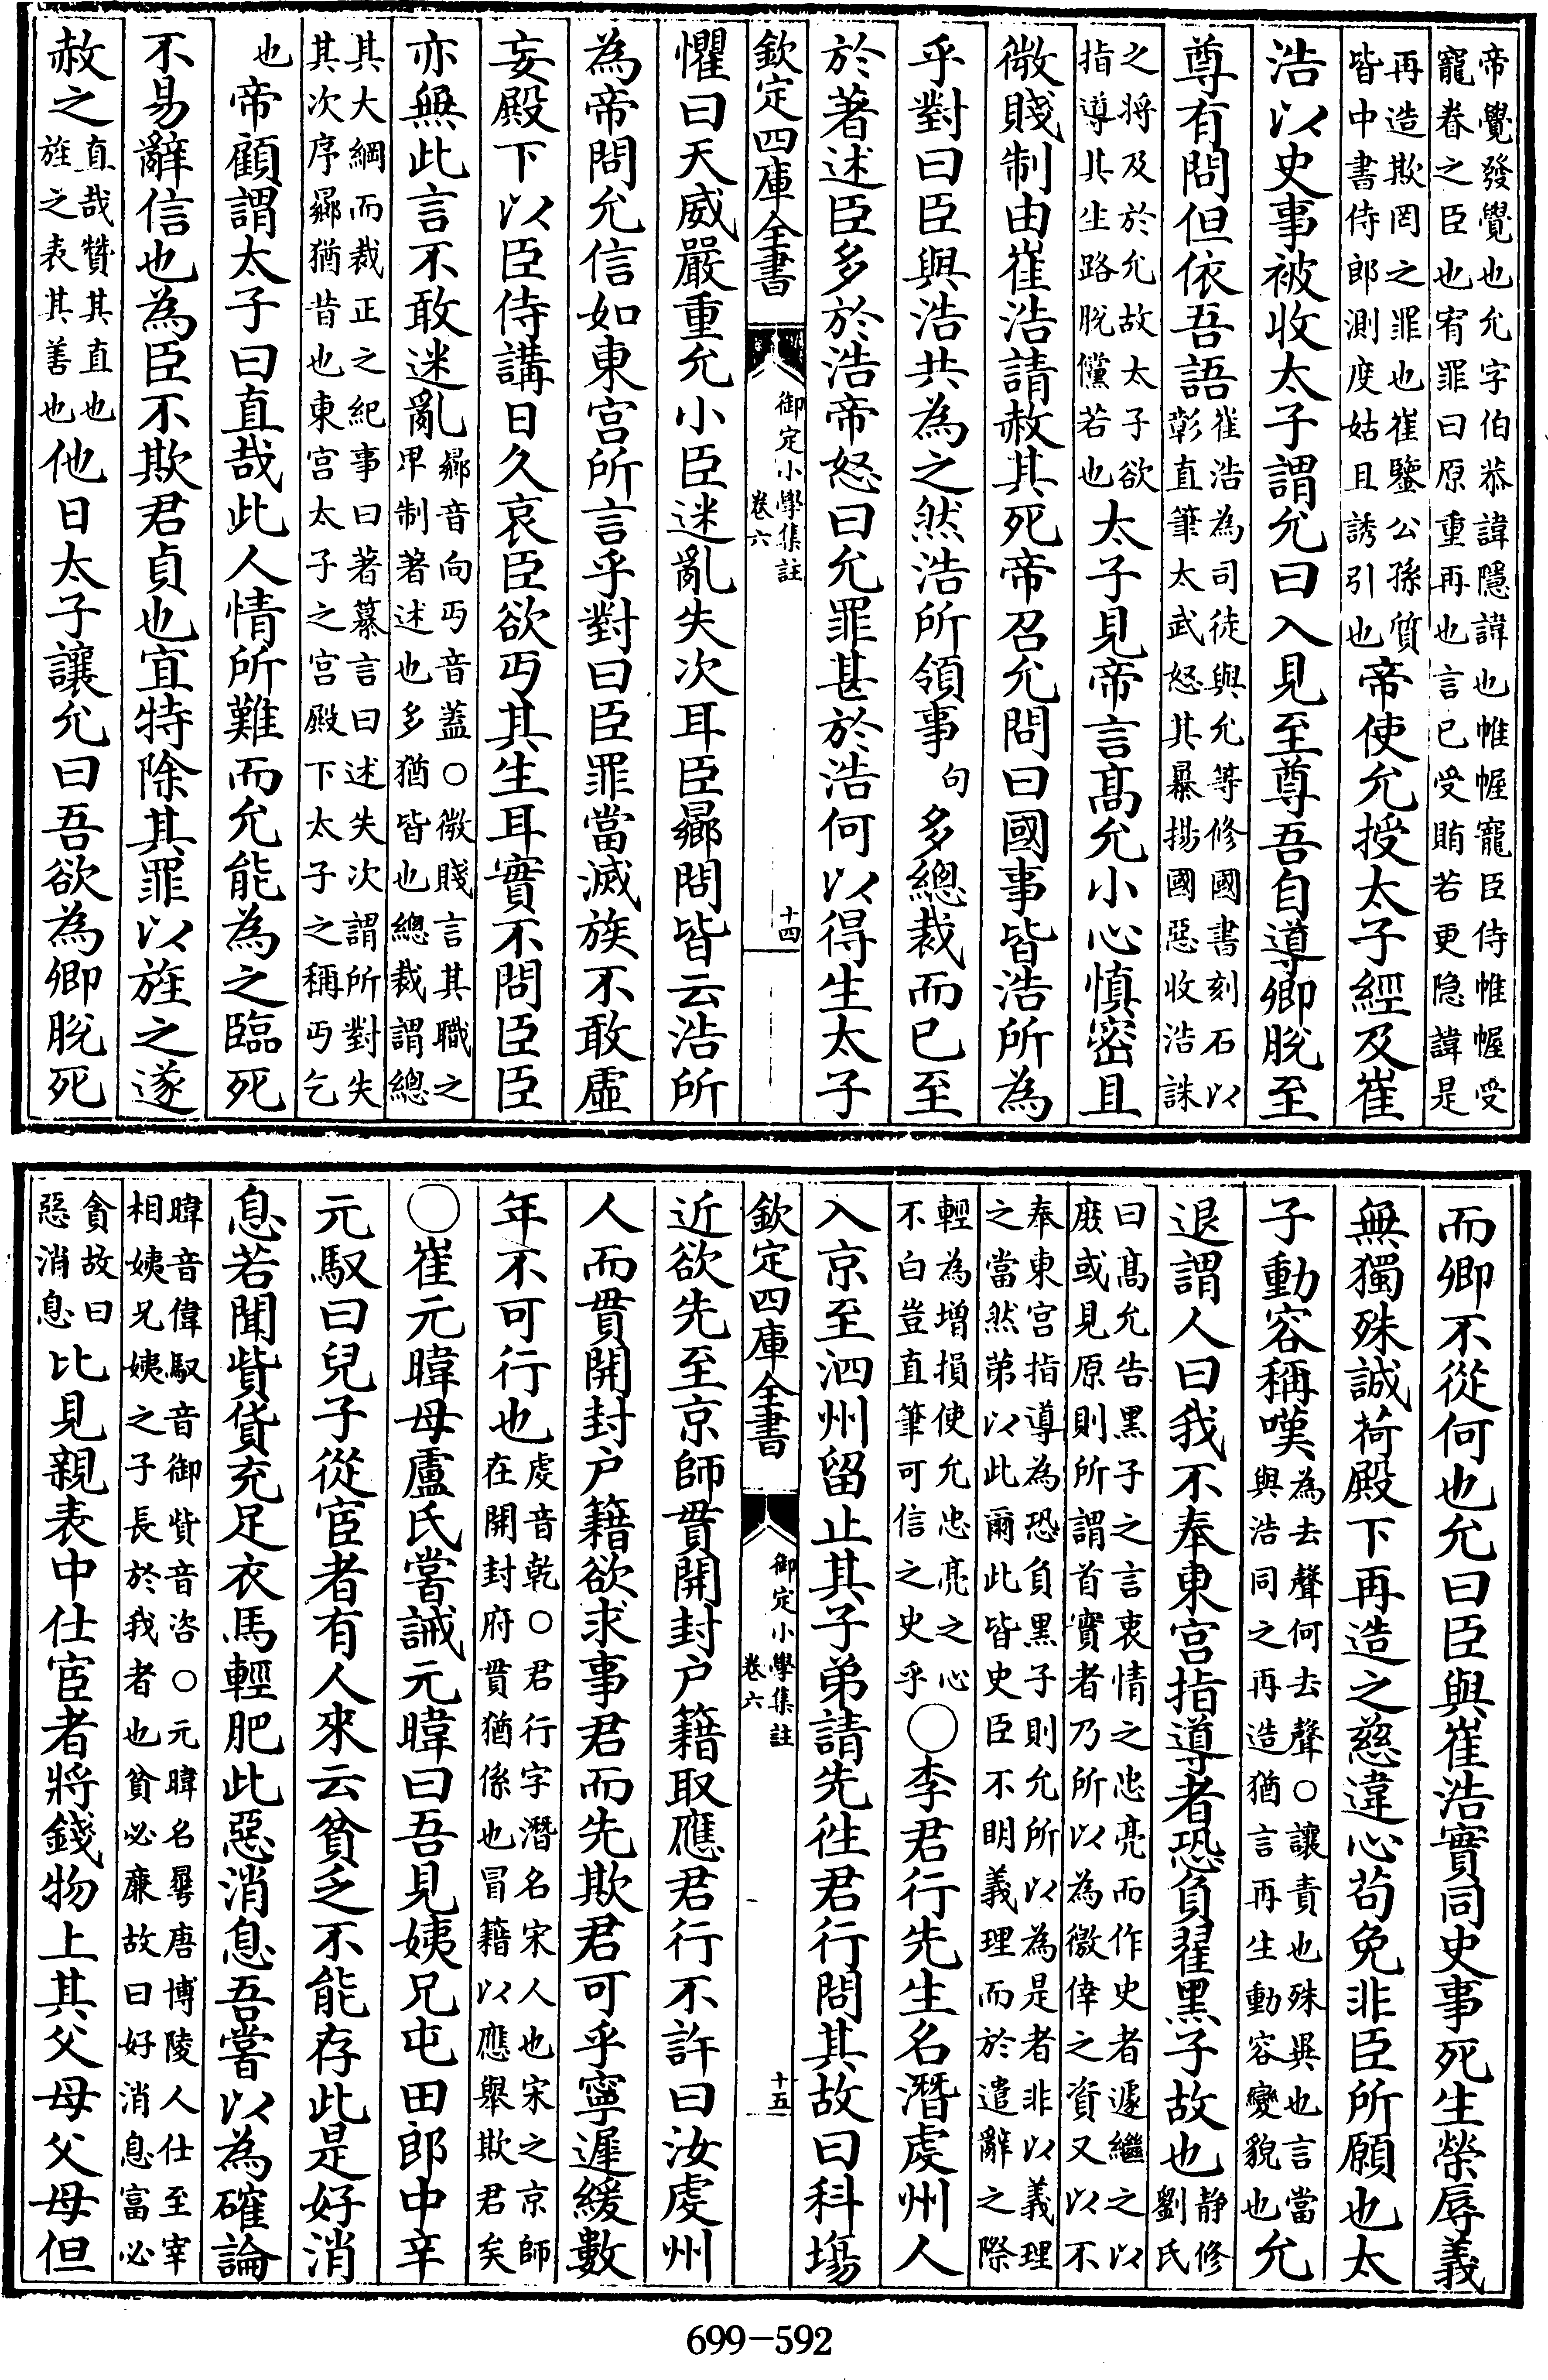 帝覺發覺也允字伯恭諱隱諱也帷幄寵臣侍帷幄受
寵眷之臣也宥罪曰原重再也言已受賄若更隐諱是
再造欺罔之罪也崔鑒公孫質
皆中書侍郎測度姑且誘引也帝使允授太子經及崔
浩以史事被收太子謂允曰入見至尊吾自導卿脫至
尊有問但依吾語崔浩為司徒與允等修國書刻石以
彰直筆太武怒其暴揚國惡收浩誅
之將及於允故太子欲
指導其生路脫儻若也太子見帝言髙允小心慎密且
微賤制由崔浩請赦其死帝召允問曰國事皆浩所為
乎對曰臣與浩共為之然浩所領事句多總裁而已至
於著述臣多於浩帝怒曰允罪甚於浩何以得生太子
欽定四庫全書 御定小學集註 卷六 十四
懼曰天威嚴重允小臣迷亂失次耳臣曏問皆云浩所
為帝問允信如東宫所言乎對曰臣罪當滅族不敢虛
妄殿下以臣侍講日久哀臣欲丐其生耳實不問臣臣
亦無此言不敢迷亂曏音向丐音蓋○微賤言其職之
卑制著述也多猶皆也總裁謂總
其大綱而裁正之紀事曰著纂言曰述失次謂所對失
其次序曏猶昔也東宫太子之宫殿下太子之稱丐乞
也帝顧謂太子曰直哉此人情所難而允能為之臨死
不易辭信也為臣不欺君貞也宜特除其罪以旌之遂
赦之直哉贊其直也
旌之表其善也他日太子讓允曰吾欲為卿脫死
而卿不從何也允曰臣與崔浩實同史事死生榮辱義
無獨殊誠荷殿下再造之慈違心苟免非臣所願也太
子動容稱嘆為去聲何去聲○讓責也殊異也言當
與浩同之再造猶言再生動容變貌也允
退謂人曰我不奉東宫指導者恐負翟黑子故也静修
劉氏
曰髙允告黑子之言衷情之忠亮而作史者遽繼之以
庶或見原則所謂首實者乃所以為徼倖之資又以不
奉東宫指導為恐負黑子則允所以為是者非以義理
之當然弟以此爾此皆史臣不明義理而於遣辭之際
輕為增損使允忠亮之心
不白豈直筆可信之史乎○李君行先生名潛虔州人
入京至泗州留止其子弟請先徃君行問其故曰科塲
欽定四庫全書 御定小學集註 卷六 十五
近欲先至京師貫開封户籍取應君行不許曰汝虔州
人而貫開封户籍欲求事君而先欺君可乎寧遲緩數
年不可行也虔音乾○君行字潛名宋人也宋之京師
在開封府貫猶係也冒籍以應舉欺君矣
○崔元暐母盧氏嘗誡元暐曰吾見姨兄屯田郎中辛
元馭曰兒子從宦者有人來云貧乏不能存此是好消
息若聞貲貨充足衣馬輕肥此惡消息吾嘗以為確論
暐音偉馭音御貲音咨○元暐名曅唐博陵人仕至宰
相姨兄姨之子長於我者也貧必廉故曰好消息富必
貪故曰
惡消息比見親表中仕宦者將錢物上其父母父母但
699－592